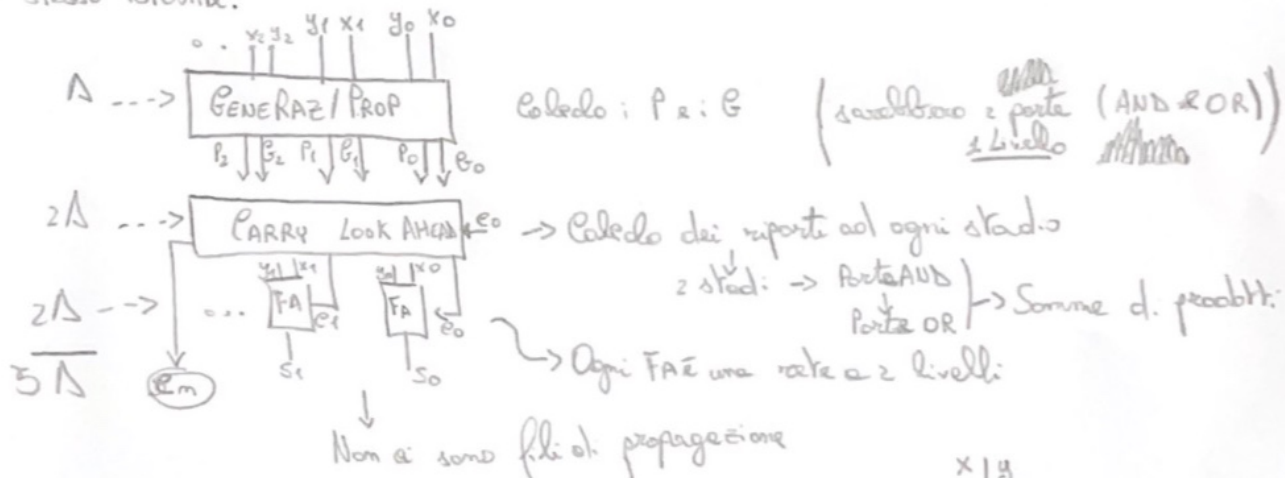 stesso istante.
.. x2 y2 y1 x1 y0 x0
Δ ---> GENERAZ/PROP Calcolo i P e i G (sarebbero 2 porte (AND e OR))
1 Livello
P2 G2 P1 G1 P0 G0
2Δ ---> CARRY LOOK AHEAD c0 -> Calcolo dei riporti ad ogni stadio
y1 x1 y0 x0
2 stadi -> Porte AND
Porte OR -> Somme di prodotti
2Δ --> ... FA c1 FA c0
-> Ogni FA è una rete a 2 livelli
5Δ cm s1 s0
Non ci sono fili di propagazione
x | y